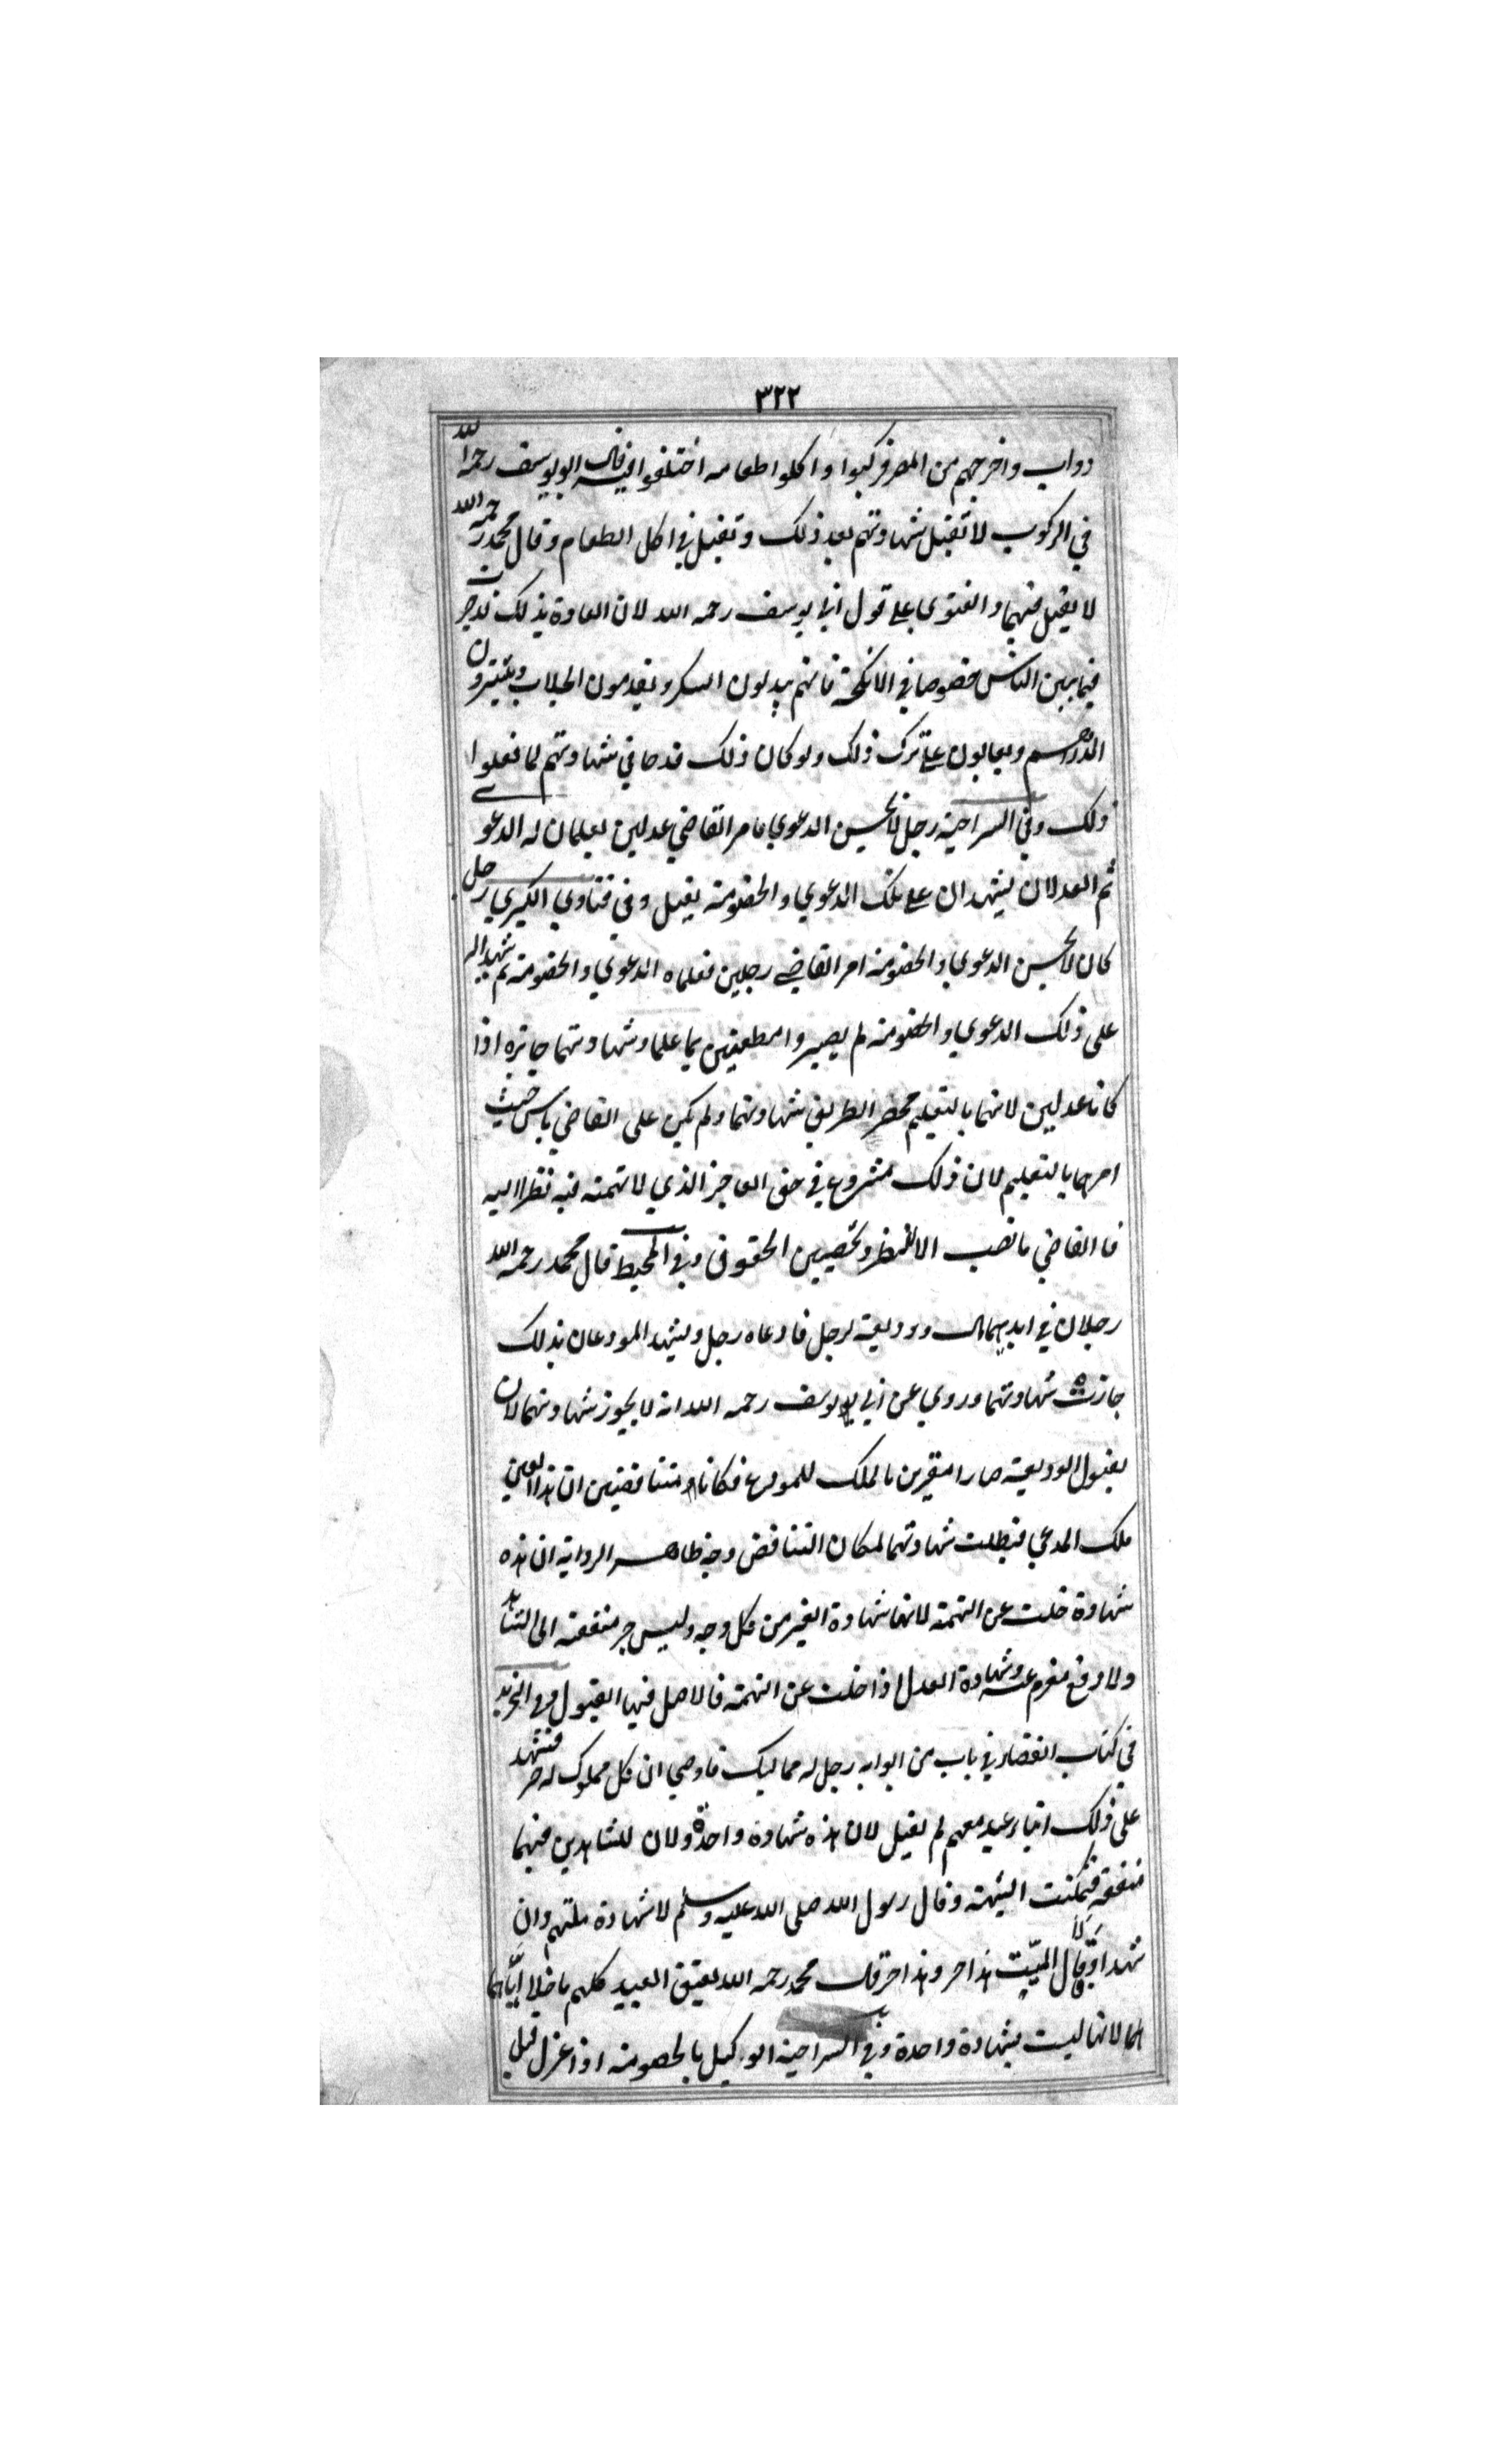 ٣٢٢
دواب واخرجهم من المصر فركبوا واكلوا طعامه اختلفوا فيه قال ابو يوسف رحمه الله
في الركوب لا تقبل شهادتهم بعد ذلك وتقبل في اكل الطعام وقال محمد رحمه الله
لا يقبل فيهما والفتوى على قول ابي يوسف رحمه الله لان العادة بذلك قد جرت
فيما بين الناس خصوصا في الانكحة فانهم يبدلون السكر ويقدمون الجلاب وينثرون
الدراهم ويعابون على ترك ذلك ولو كان ذلك قدحا في شهادتهم لما فعلوا
ذلك وفي السراجية رجل لا يحسن الدعوي فامر القاضي عدلين يعلمان له الدعوى
ثم العدلان يشهدان على تلك الدعوي والخصومة يقبل وفي فتاوي الكبري رجل
كان لا يحسن الدعوي والخصومة امر القاضي رجلين فعلماه الدعوي والخصومة ثم شهدا له
على ذلك الدعوي والخصومة لم يصيروا مطعنين بما علما وشهادتهما جايزه اذا
كانا عدلين لانهما بالتعليم محضر الطريق شهادتهما ولم يكن على القاضي باس حيث
امرهما بالتعليم لان ذلك مشروع في حق العاجز الذي لا تهمة فيه نظرا اليه
فا القاضي ما نصب الا للنظر وتحصين الحقوق وفي المحيط قال محمد رحمه الله
رجلان في ايديهما مال وديعة لرجل فادعاه رجل ويشهد المودعان بذلك
جازت شهادتهما وروي عن ابي يوسف رحمه الله انه لا يجوز شهادتهما لان
بقبول الوديعة صارا مقرين بالملك للمودع فكانا متناقضين ان هذا العين
ملك المدعي فبطلت شهادتهما لمكان التناقض وجه ظاهر الرواية ان هذه
شهادة خلت عن التهمة لانها شهادة الغير من كل وجه وليس جر منفعة الى الشاهد
ولا دفع مغرم عنه وشهادة العدل اذا خلت عن التهمة فالاصل فيها القبول وفي التجريد
في كتاب القضاء في باب من ابوابه رجل له مماليك فاوصي ان كل مملوك له حر فشهد
على ذلك اثنان عبد معهم لم يقبل لان هذه شهادة واحدة ولان للشاهدين فيهما
منفعة فتمكنت الشبهة وقال رسول الله صلى الله عليه وسلم لا شهادة لمتهم وان
شهدا وقالا قال الميت هذا حر وهذا حر قال محمد رحمه الله يعتق العبيد كلهم ما خلا اياهما
لهما لانها ليست بشهادة واحدة وفي السراجية الوكيل بالخصومة اذا عزل قبل